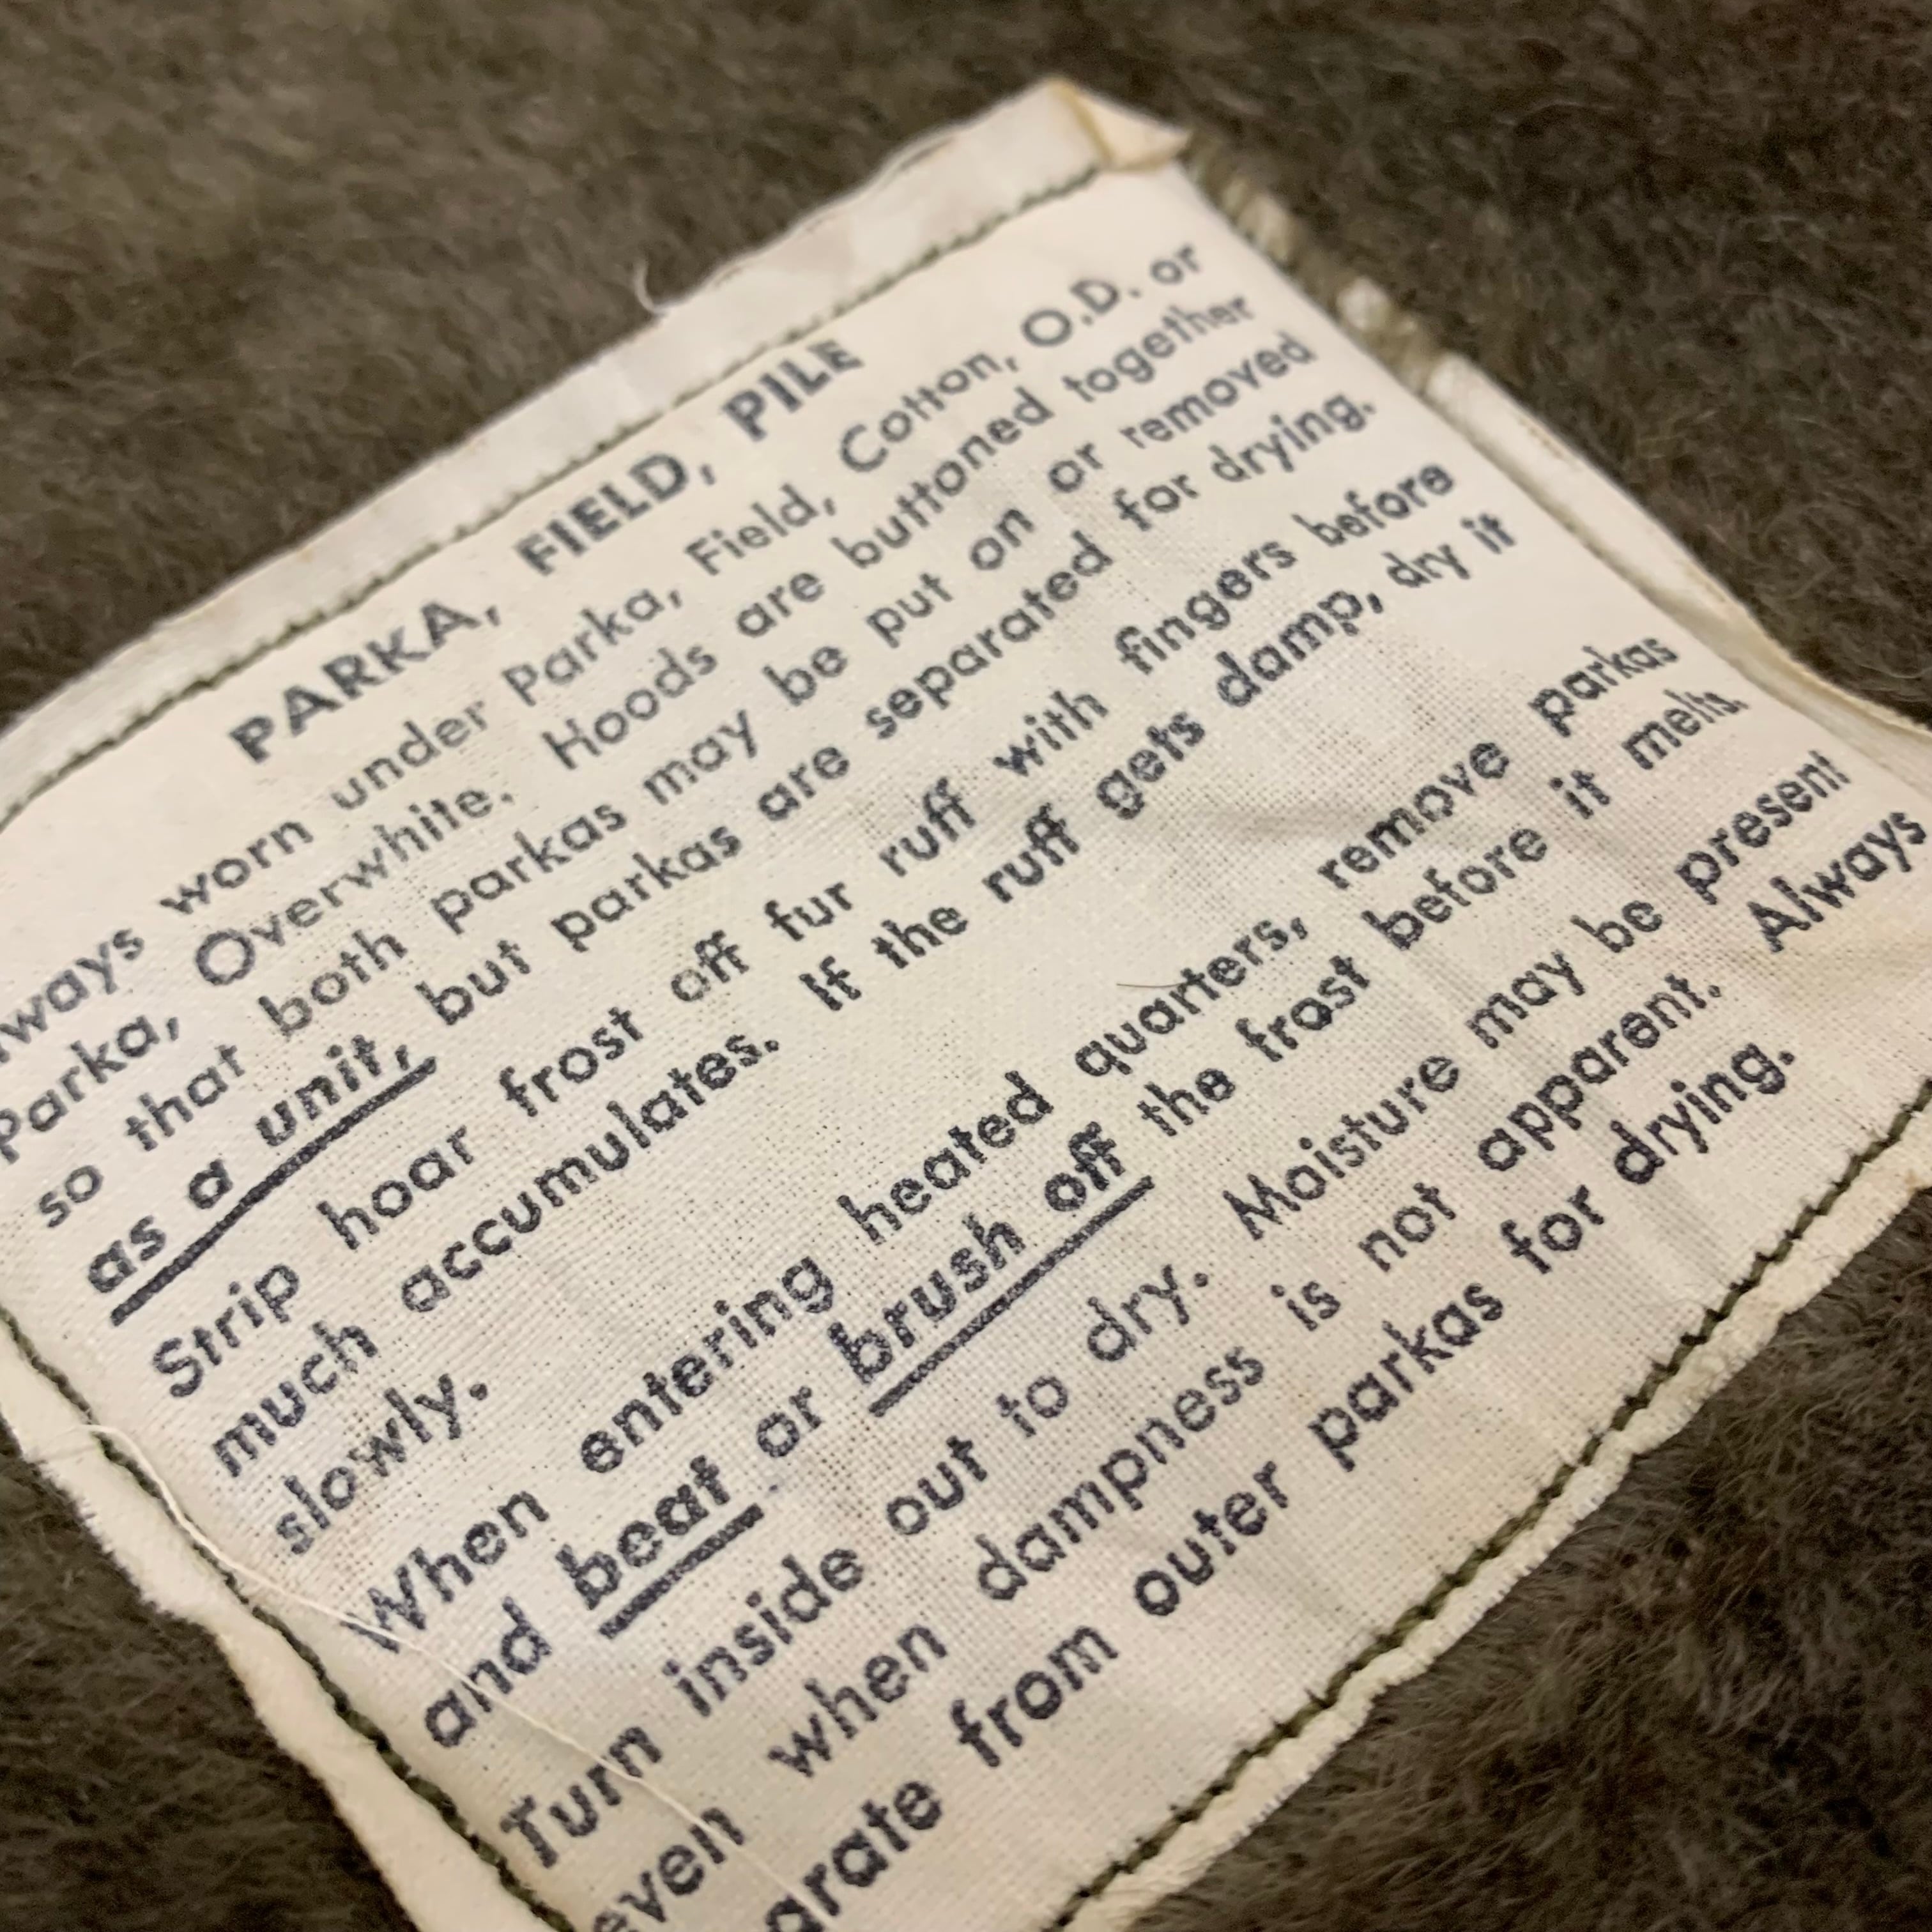 PARKA, FIELD, PILE
lways worn under Parka, Field, Cotton, O.D. or
Parka, Overwhite. Hoods are buttoned together
so that both parkas may be put on or removed
as a unit, but parkas are separated for drying.
Strip hoar frost off fur ruff with fingers before
much accumulates. If the ruff gets damp, dry it
slowly.
When entering heated quarters, remove parkas
and beat or brush off the frost before it melts.
Turn inside out to dry. Moisture may be present
even when dampness is not apparent. Always
arate from outer parkas for drying.